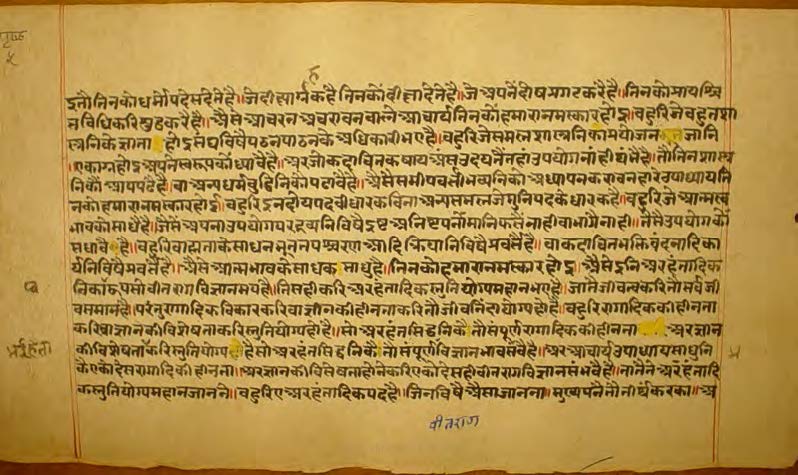 पृष्ठ
५
ह
इ तौ तिनको धर्मोपदेस देते है॥ जे दीक्षाग्राहक है तिनकौं दीक्षा देते है॥ जे अपने दोष प्रगट करै है॥ तिनको प्रायश्चि
त विधि करि सुद्ध करै है॥ ऐसे आचरन अचरावन वाले आचार्य तिनकौं हमारा नमस्कार होहु॥ बहुरि जे बहुत शा
स्त्रनिके ज्ञाता होइ संघ विषै पठन पाठन के अधिकारी भए है॥ बहुरि जे समस्त शास्त्रनि का प्रयोजन भूत जांनि
एकाग्र होइ अपने स्वरूप कौं ध्यावै है॥ अर जो कदाचित कषाय अंस उदय तैं तहां उपयोग नांही थंभै है॥ तौ तिन शास्त्र
निकौं आप पढै है॥ वा अन्य धर्मबुद्धिनिकौ पढावै है॥ ऐसै समीपवर्ती भव्यनि कौ अध्यापन करावनहारे उपाध्याय ति
नको हमारा नमस्कार होहु॥ बहुरि इन दोय पदवी धारक विना अन्य समस्त जे मुनिपद के धारक है॥ बहुरि जे आत्मस्व
भाव कौ साधै है॥ जैसें अपना उपयोग परद्रव्यनि विषै इष्ट अनिष्टपनौं मानि फसै नाही वा भागै नाही॥ तैसे उपयोग कौं
सधावै है॥ बहुरि बाह्य ताके साधनभूत तपश्चरण आदि क्रियानि विषै प्रवर्तै है॥ वा कदाचित भक्ति वंदनादि का
र्यनि विषै प्रवर्तै है॥ ऐसे आत्मभाव के साधक साधु है॥ तिनको हमारा नमस्कार होहु॥ ऐसे इनि अरहंतादिक
निका स्वरूप सो वीतराग विज्ञानमय है॥ तिसही करि अरहंतादिक स्तुति योग्य महान भए है॥ जातैं जीव तत्व करि तौ सर्व जी
व समान है॥ परंतु रागादिक विकार करि वा ज्ञान की हीनता करि तौ जीव निंदा योग्य हो है॥ बहुरि रागादिक की हीनता
करि वा ज्ञान की विशेषता करि स्तुति योग्य हो है॥ सो अरहंत सिद्धनिकै तौ संपूर्ण रागादिक की हीनता अर ज्ञान
की विशेषता करि स्तुति योग्य है सो अरहंत सिद्धनिकै तौ संपूर्ण विज्ञान भाव संभवै है॥ अर आचार्य उपाध्याय साधुनि
कै एकोदेस रागादि की हीनता॥ अर ज्ञान की विसेषता होने करि एकोदेस ही वीतराग विज्ञान संभवै है॥ तातैं ते अरहंतादि
क स्तुति योग्य महान जानने॥ बहुरि ए अरहंतादिक पद है॥ तिन विषै ऐसा जानना॥ मुख्यपनै तौ तीर्थंकर का॥ अ
अर्हंता
वीतराग